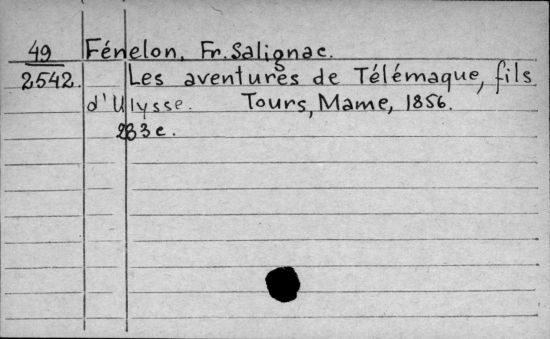 49 Fénelon, Fr. Salignac.
2542. Les aventures de Télémaque, fils
d'Ulysse. Tours, Mame, 1856.
283 c.